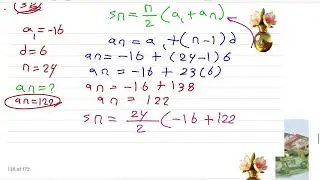 a₁ = -16
d = 6
n = 24
an = ?
an = 122
sn = n/2 (a₁ + an)
an = a₁ + (n-1)d
an = -16 + (24-1)6
an = -16 + 23(6)
an = -16 + 138
an = 122
sn = 24/2 (-16 + 122